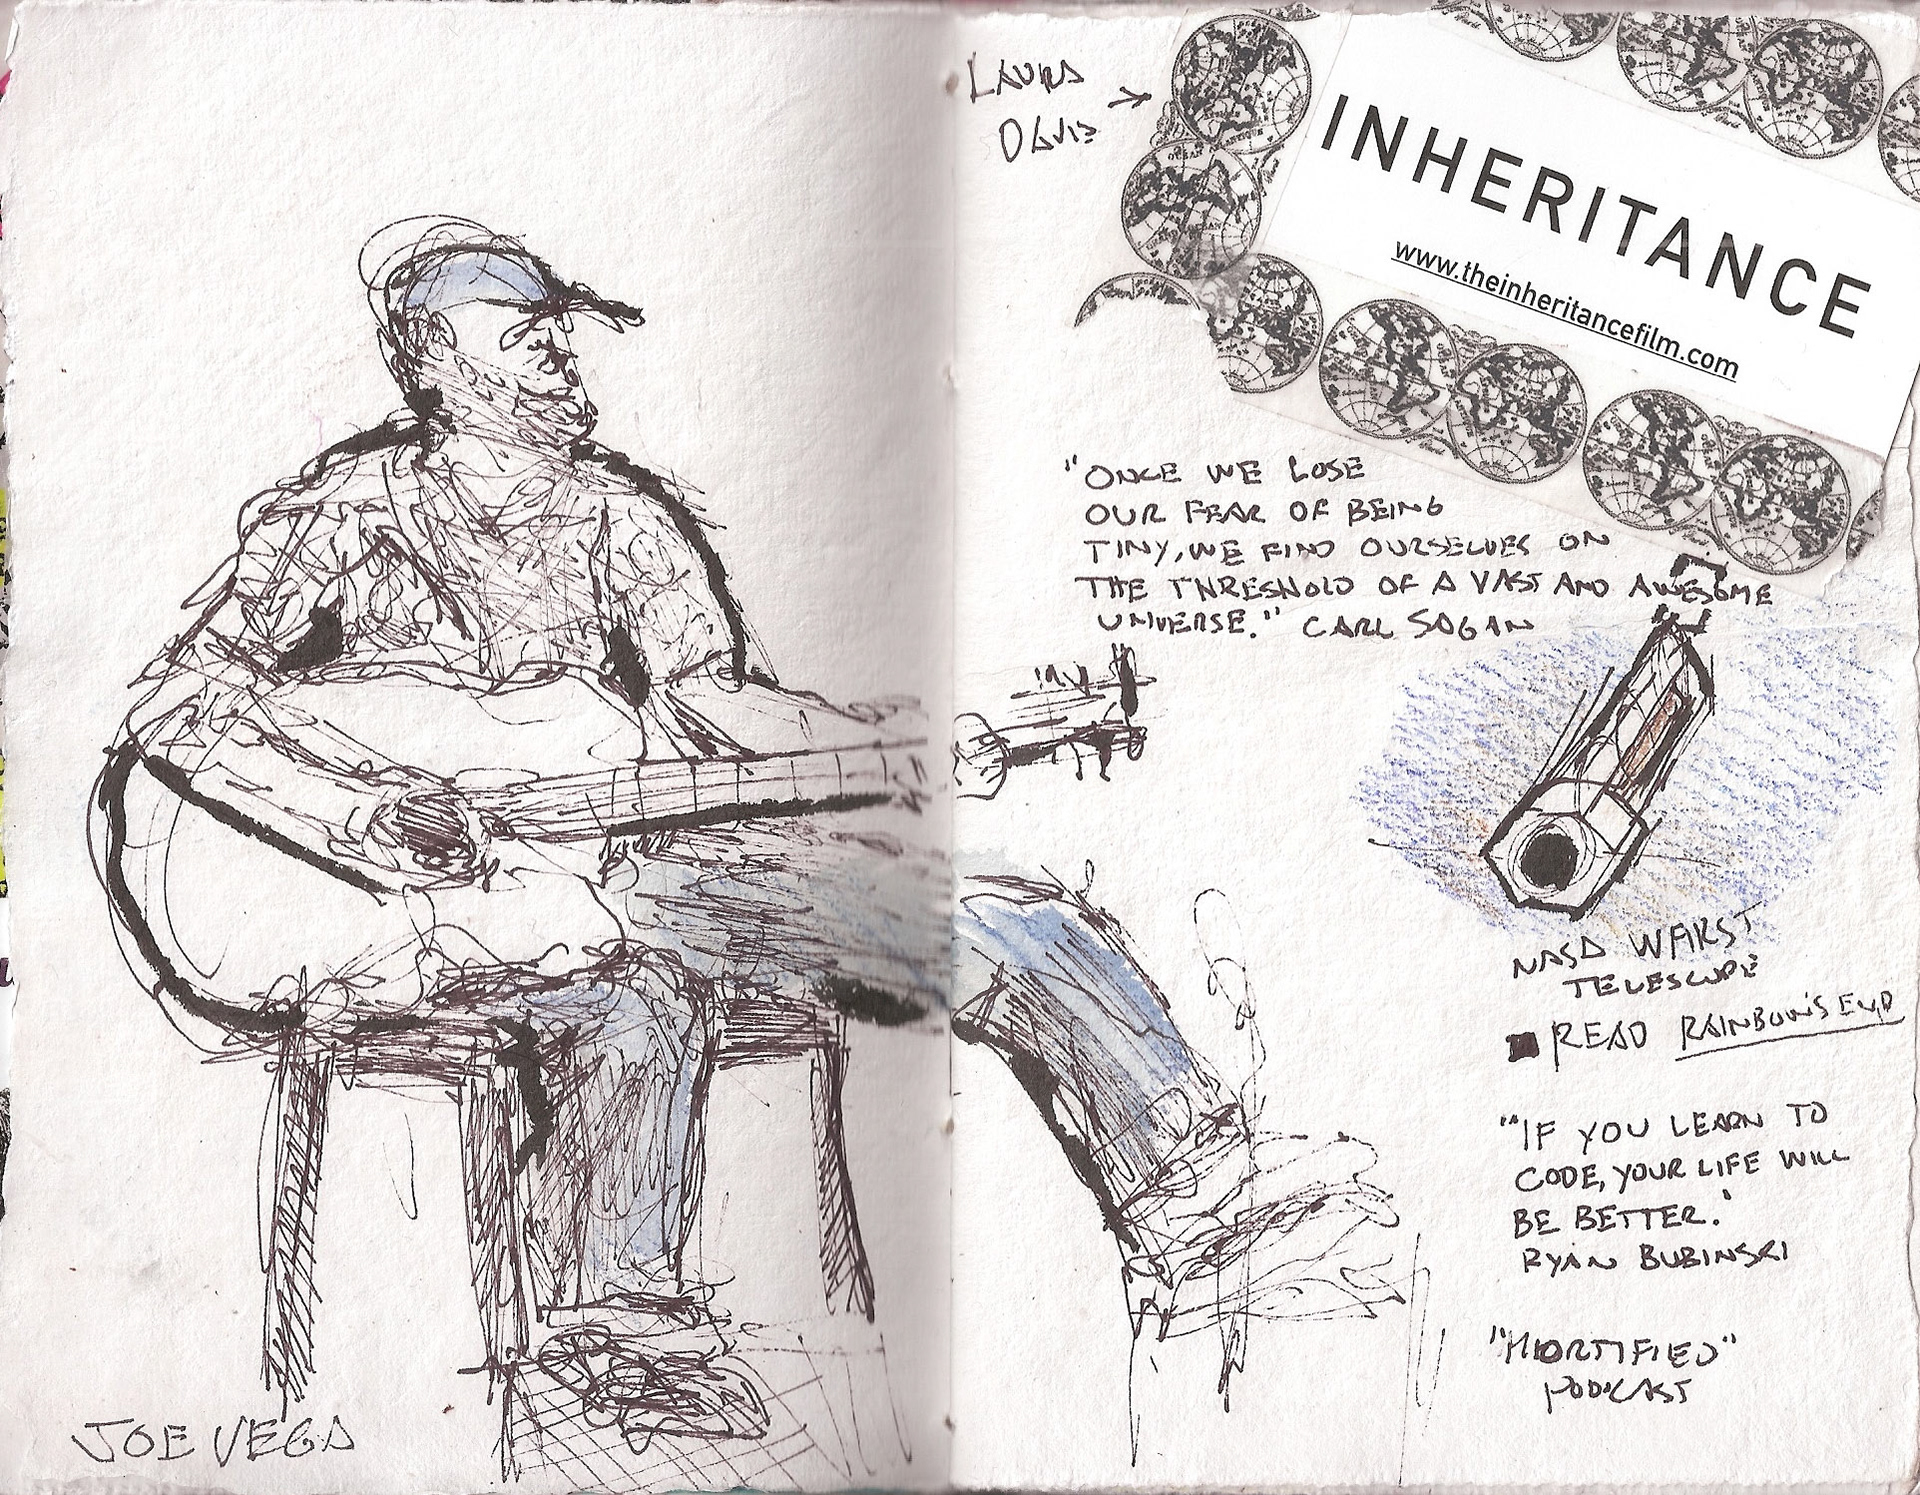 JOE VEGA
LAURA
DAVIS
INHERITANCE
www.theinheritancefilm.com
"ONCE WE LOSE
OUR FEAR OF BEING
TINY, WE FIND OURSELVES ON
THE THRESHOLD OF A VAST AND AWESOME
UNIVERSE." CARL SAGAN
NASA WFIRST
TELESCOPE
READ RAINBOW'S END
"IF YOU LEARN TO
CODE, YOUR LIFE WILL
BE BETTER."
RYAN BUBINSKI
"MORTIFIED"
PODCAST